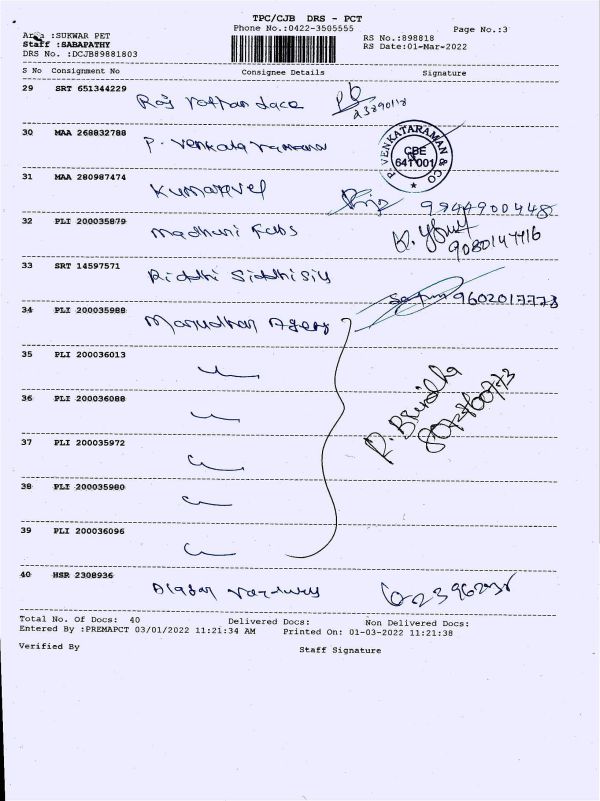 TPC/CJB DRS - PCT
Phone No.:0422-3505555 Page No.:3
Area :SUKWAR PET RS No.:898818
Staff :SABAPATHY RS Date:01-Mar-2022
DRS No. :DCJB89881803
S No Consignment No Consignee Details Signature
29 SRT 651344229 Raj rattan Lace
30 MAA 268832788 P. Venkata ramana P. VENKATARAMAN & CO CBE 641 001
31 MAA 280987474 Kumaravel 9944900448
32 PLI 200035879 madhuni Fabs 9080147716
33 SRT 14597571 Riddhi Siddhi Silk
34 PLI 200035988 Marudhar Agency 9602017773
35 PLI 200036013
36 PLI 200036088
37 PLI 200035972
38 PLI 200035980
39 PLI 200036096
40 HSR 2308936
Total No. Of Docs: 40 Delivered Docs: Non Delivered Docs:
Entered By :PREMAPCT 03/01/2022 11:21:34 AM Printed On: 01-03-2022 11:21:38
Verified By Staff Signature